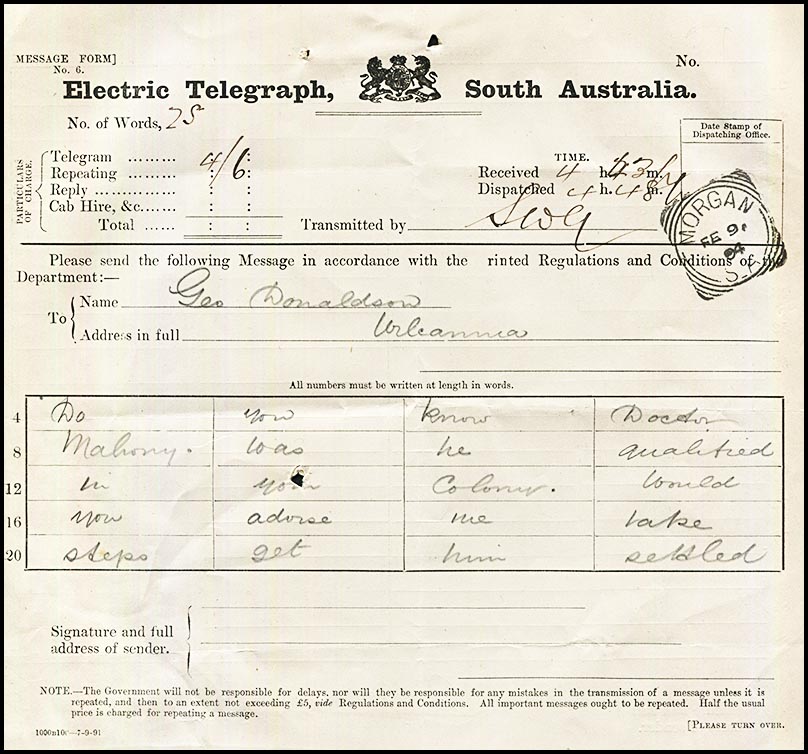 MESSAGE FORM]
No. 6.
No.
Electric Telegraph, South Australia.
No. of Words, 25
Date Stamp of
Dispatching Office.
PARTICULARS
OF CHARGE.
Telegram ......... 4/6
Repeating ......... : :
Reply ............... : :
Cab Hire, &c....... : :
Total ...... : :
TIME.
Received 4 h. 43 m.
Dispatched 4 h. 48 m.
Transmitted by
MORGAN
FE 9
04
S.A
Please send the following Message in accordance with the rinted Regulations and Conditions of the
Department:—
To
Name Geo Donaldson
Address in full Wilcannia
All numbers must be written at length in words.
4 Do you know Doctor
8 Mahony. was he qualified
12 in your Colony. Would
16 you advise me take
20 steps get him settled
Signature and full
address of sender.
NOTE.—The Government will not be responsible for delays, nor will they be responsible for any mistakes in the transmission of a message unless it is
repeated, and then to an extent not exceeding £5, vide Regulations and Conditions. All important messages ought to be repeated. Half the usual
price is charged for repeating a message.
7-9-91
[PLEASE TURN OVER.